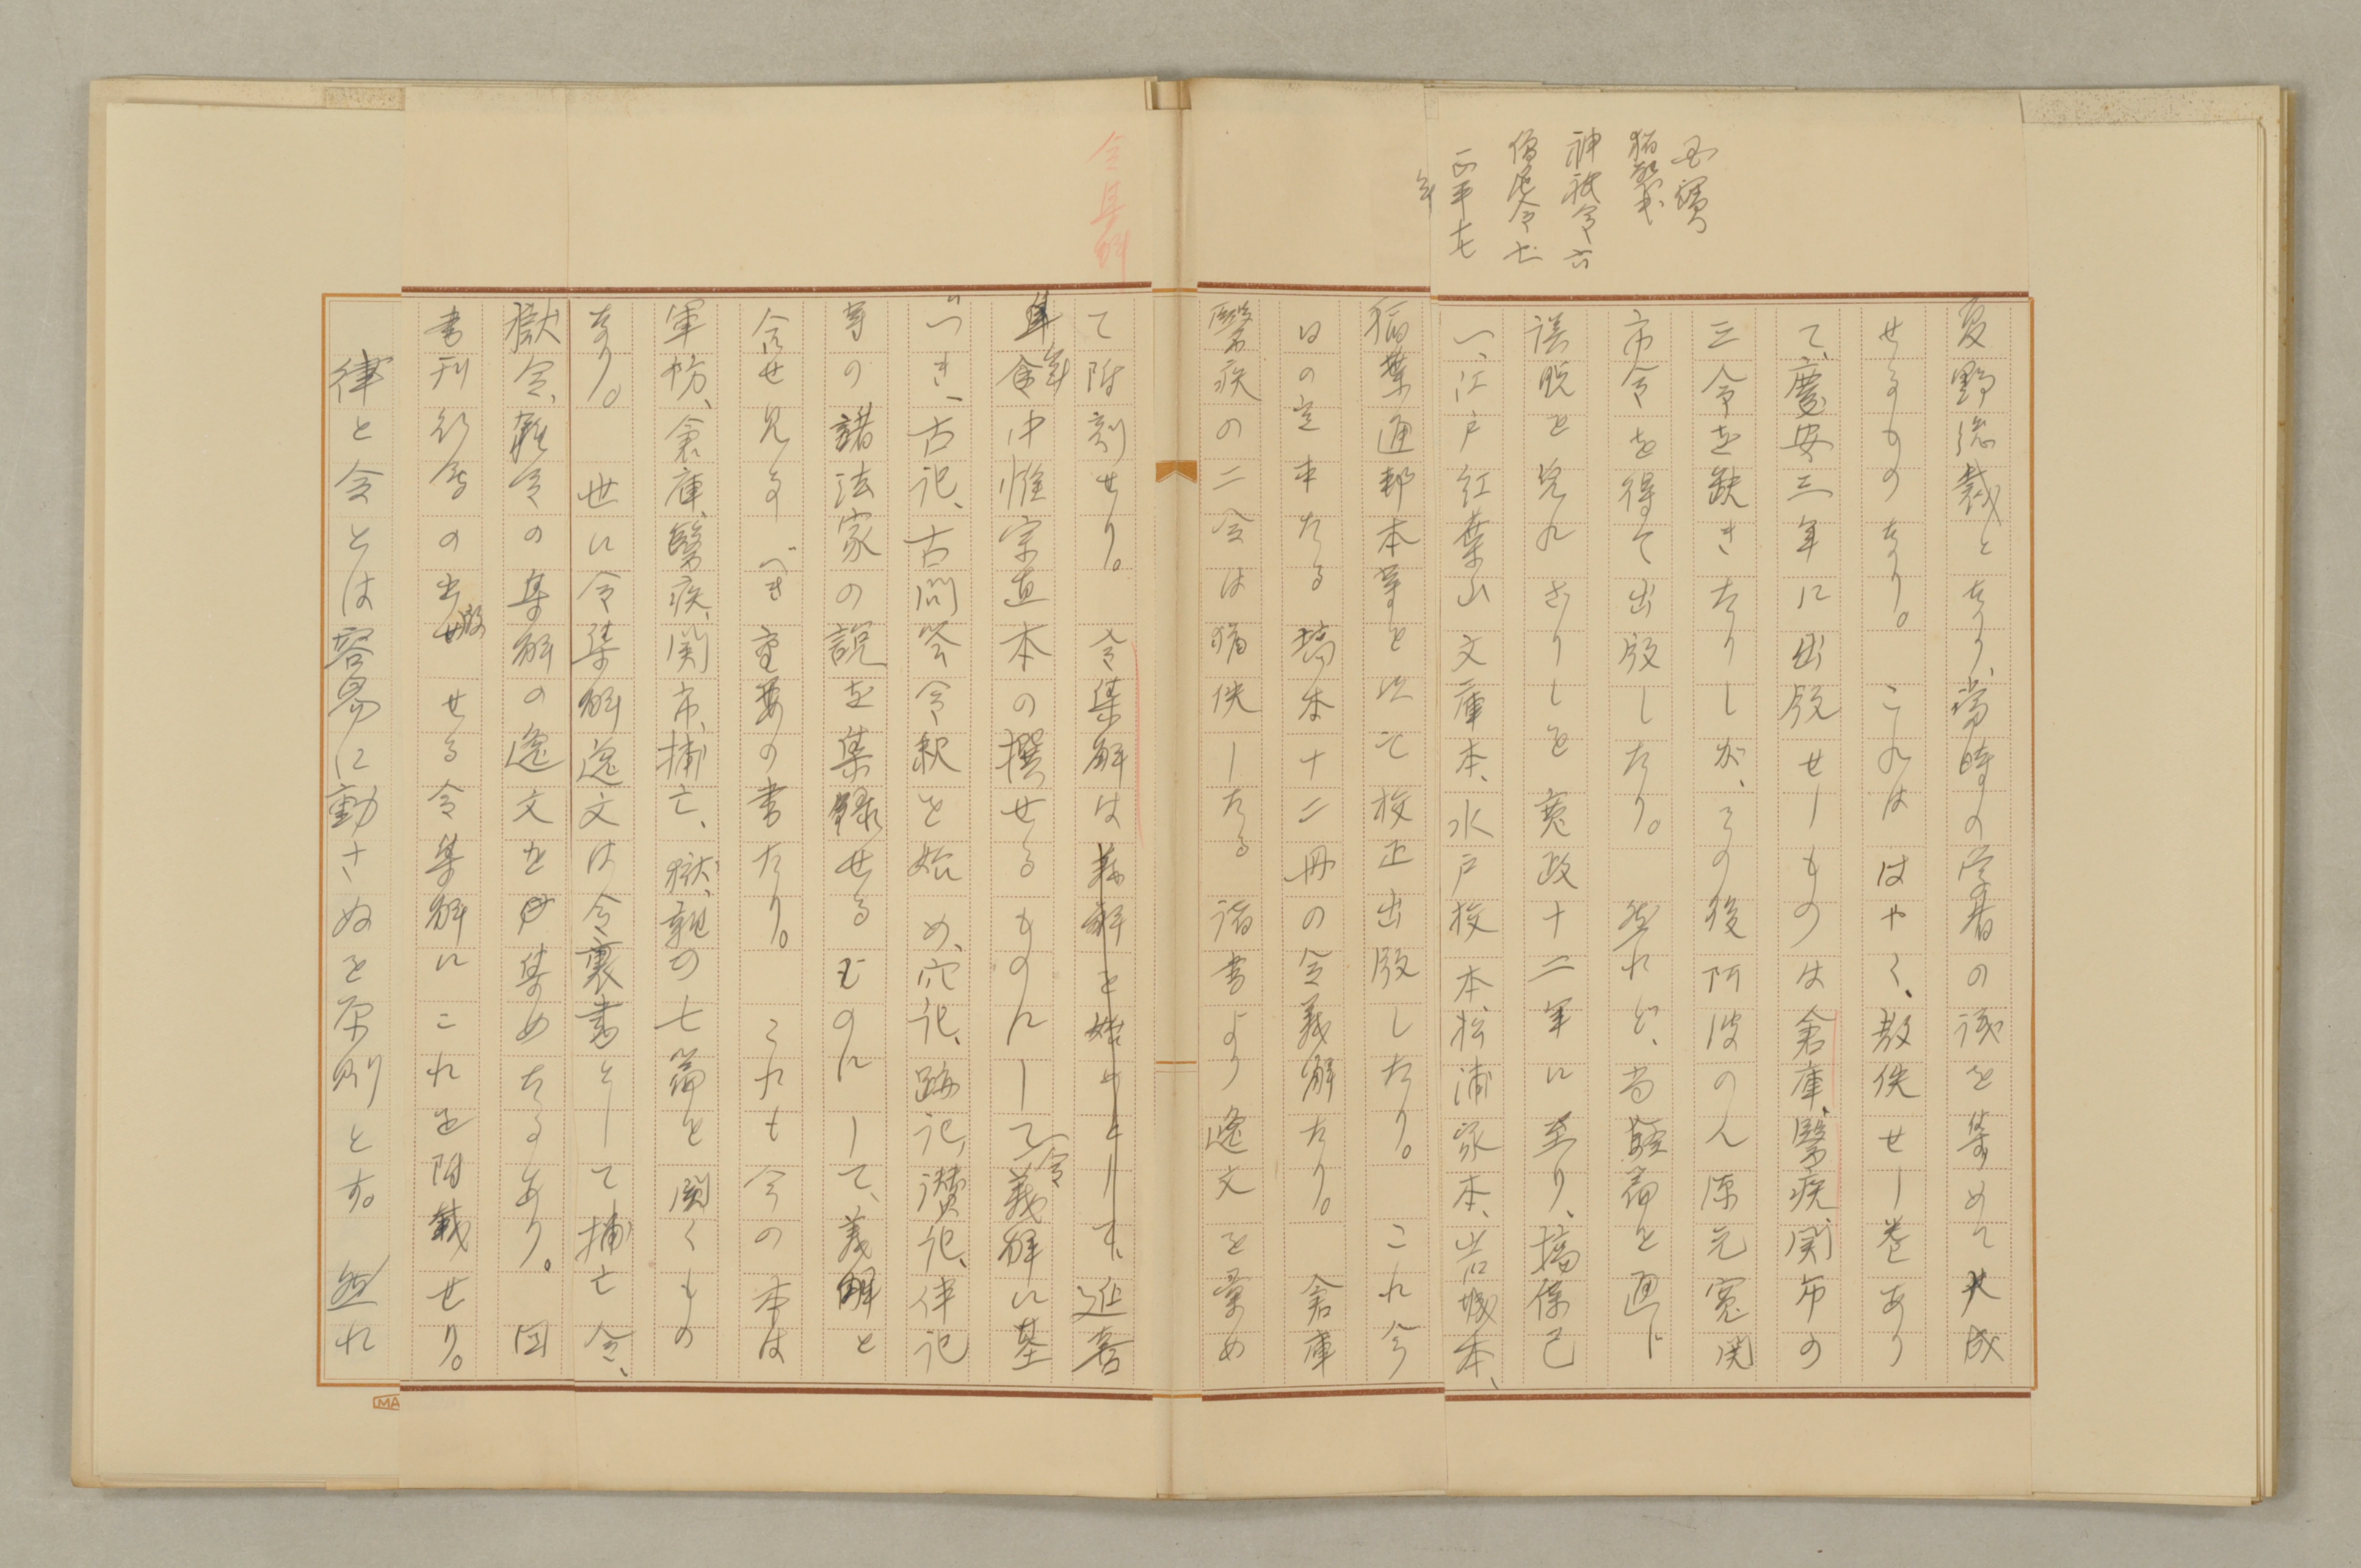 夏野総裁となり、当時の学者の議を集めて大成
せるものなり。これははやく、散佚せし巻あり
て、慶安三年に出版せしものは倉庫、醫疾、関市の
三令を缺きたりしが、その後阿波の人原元寛関
市令を得て出版したり。然れど、尚数篇を通じ
誤脱を免れざりしを寛政十二年に至り、塙保己
一、江戸紅葉山文庫本、水戸校本、松浦家本、岩城本、
稲葉通邦本等を以て校正出版したり。これ今
日の定本たる塙本十二冊の令義解たり。倉庫
醫疾の二令は猶佚したる諸書より逸文を彙め
て附刻せり。令集解は義解を始めとして、延喜
年中惟宗直本の撰せるものにして令義解に基
づき、古記、古問答、令釈を始め、穴記、跡記、讃記、伴記
等の諸法家の説を集録せるものにして、義解と
合せ見るべき重要の書たり。これも今の本は
軍防、倉庫、醫疾、関市、捕亡、獄、
の七篇を闕くもの
なり。世に令集解逸文は令裏書として捕亡令、
獄令、雜令の集解の逸文を集めたるあり。国
書刊行会の出版せる令集解にこれを附載せり。
律と令とは容易に動さぬを原則とす。然れ
神祇令六
僧尼令七
令集解